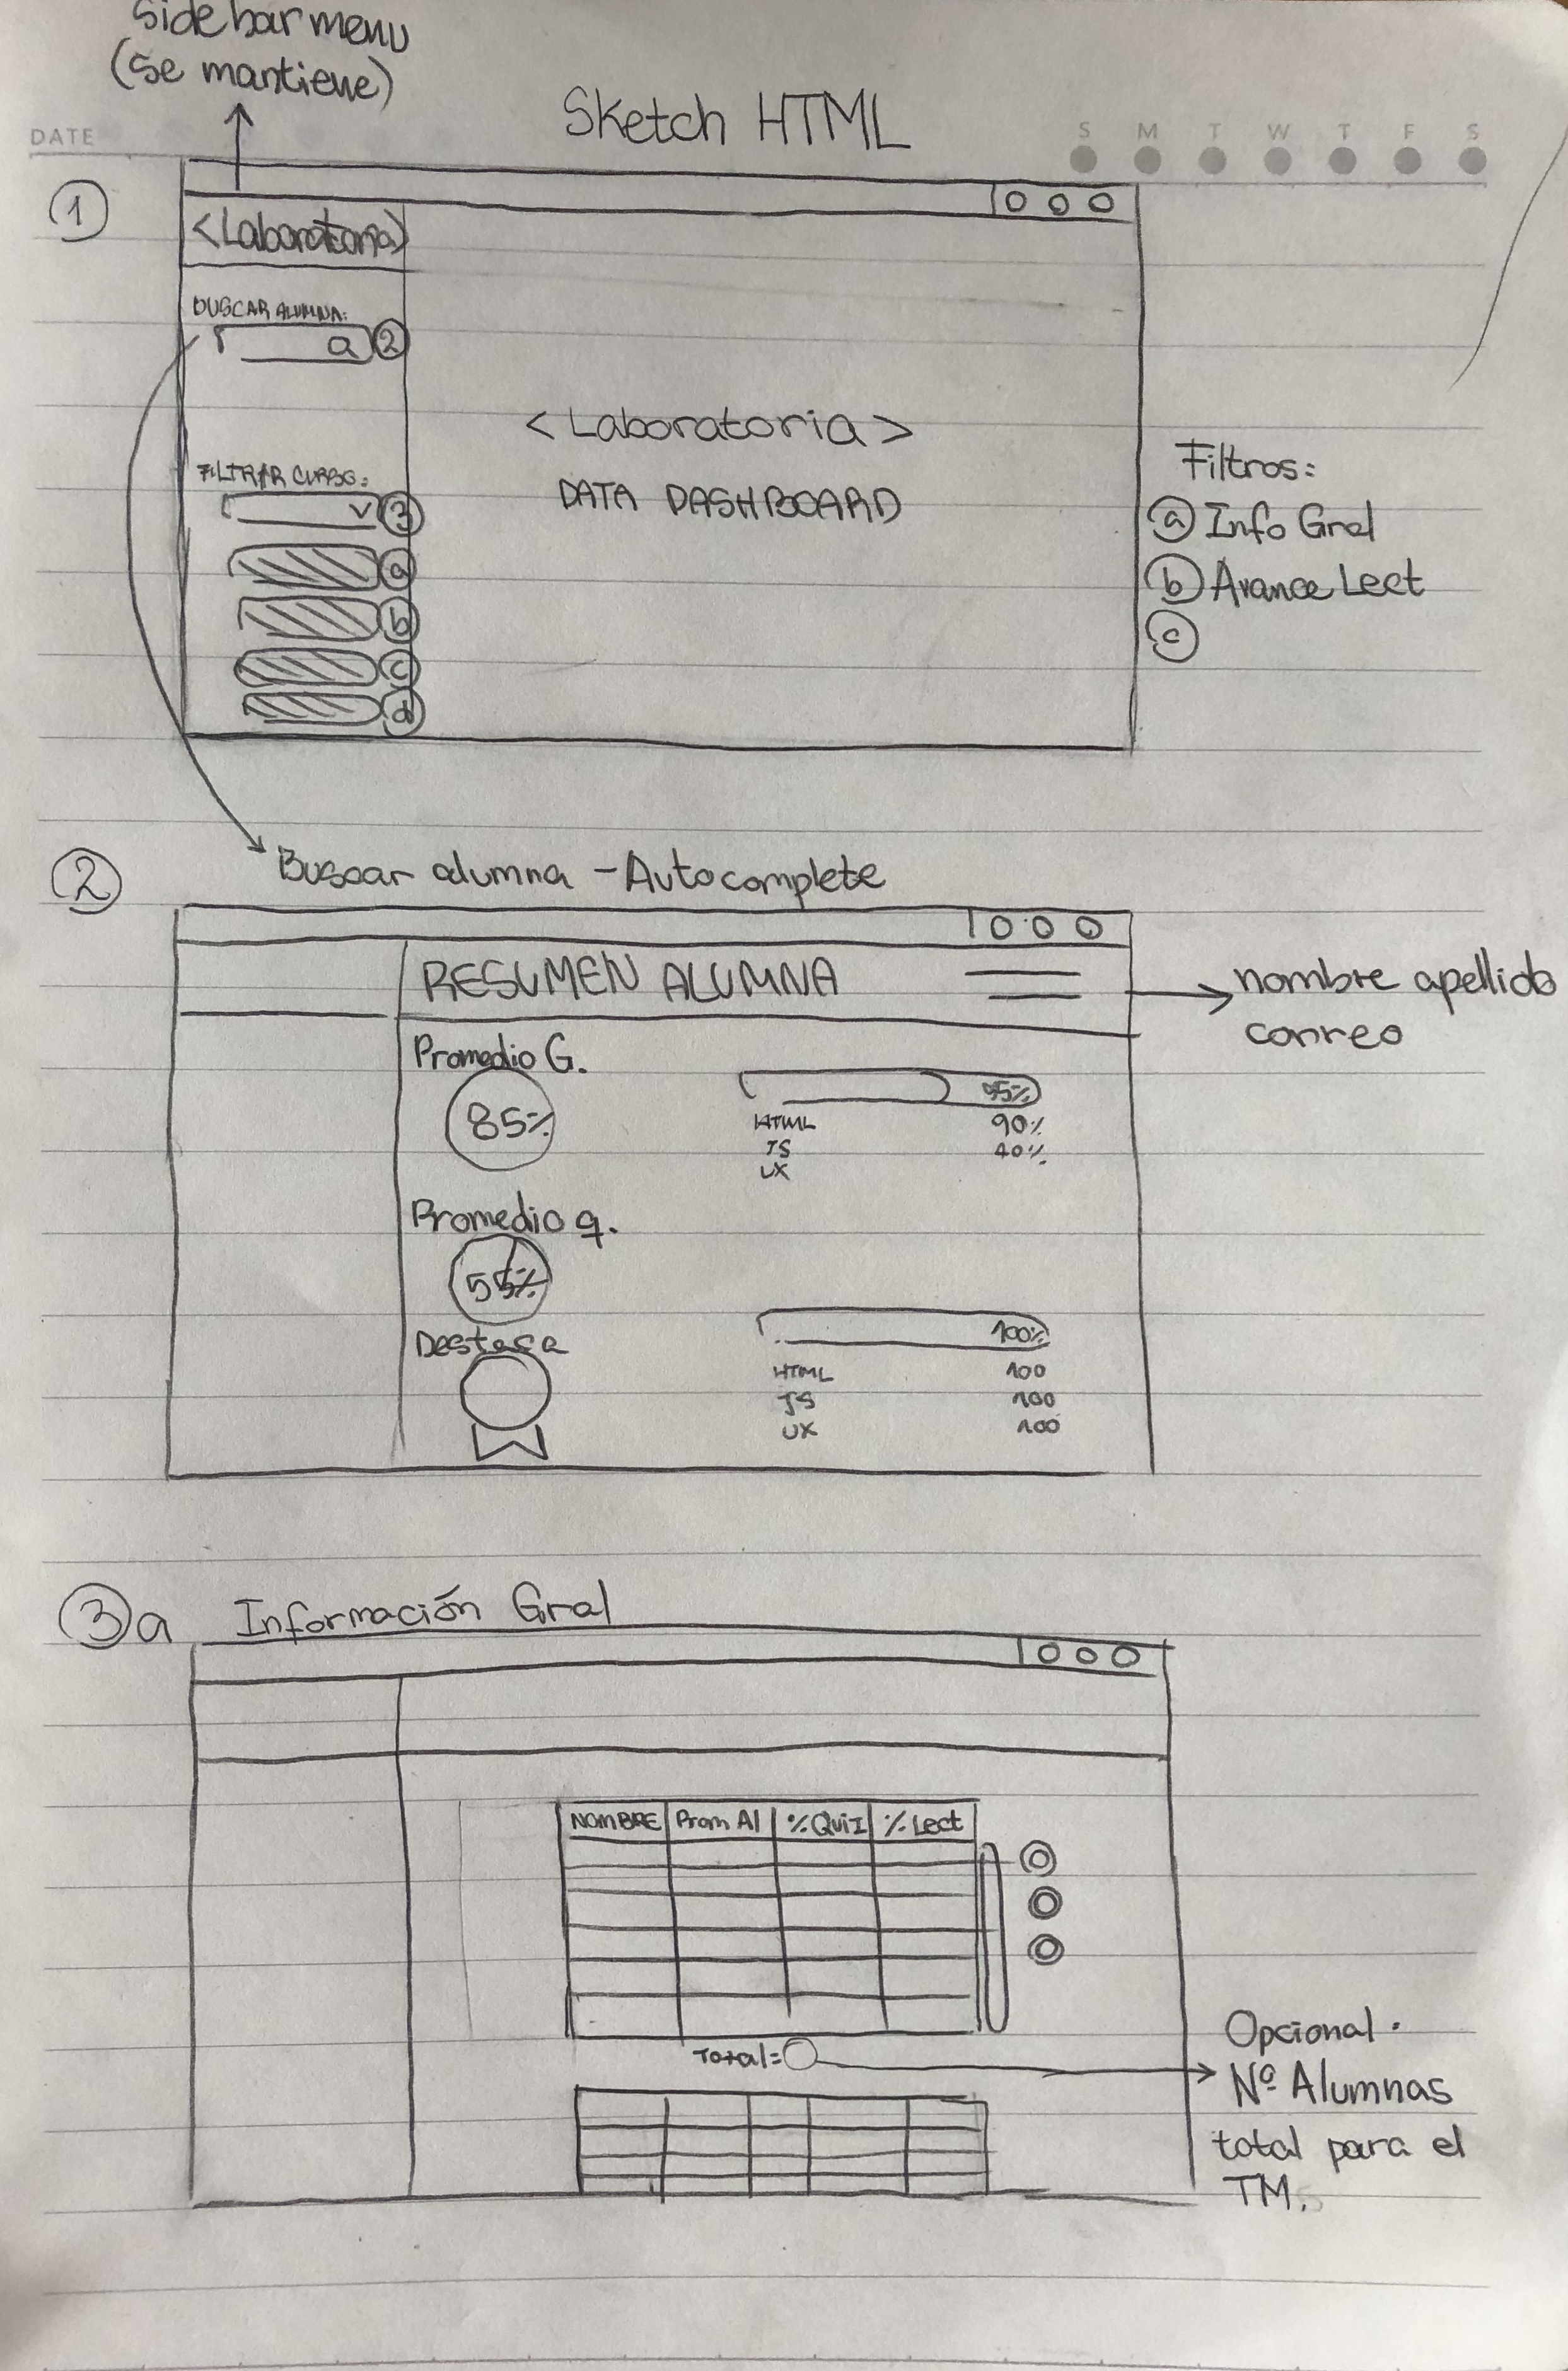 Sidebar menu
(se mantiene)
Sketch HTML
DATE
S M T W T F S
1
<Laboratoria>
BUSCAR ALUMNA:
2
<Laboratoria>
DATA DASHBOARD
FILTRAR CURSO:
3
a
b
c
d
Filtros:
a Info Gral
b Avance Lect
c
2
Buscar alumna - Autocomplete
RESUMEN ALUMNA
nombre apellido
correo
Promedio G.
85%
95%
HTML 90%
JS 40%
UX
Promedio q.
55%
Destaca
100%
HTML 100
JS 100
UX 100
3 a Información Gral
NOMBRE Prom Al %Quiz % Lect
Total=
Opcional.
Nº Alumnas
total para el
TM.